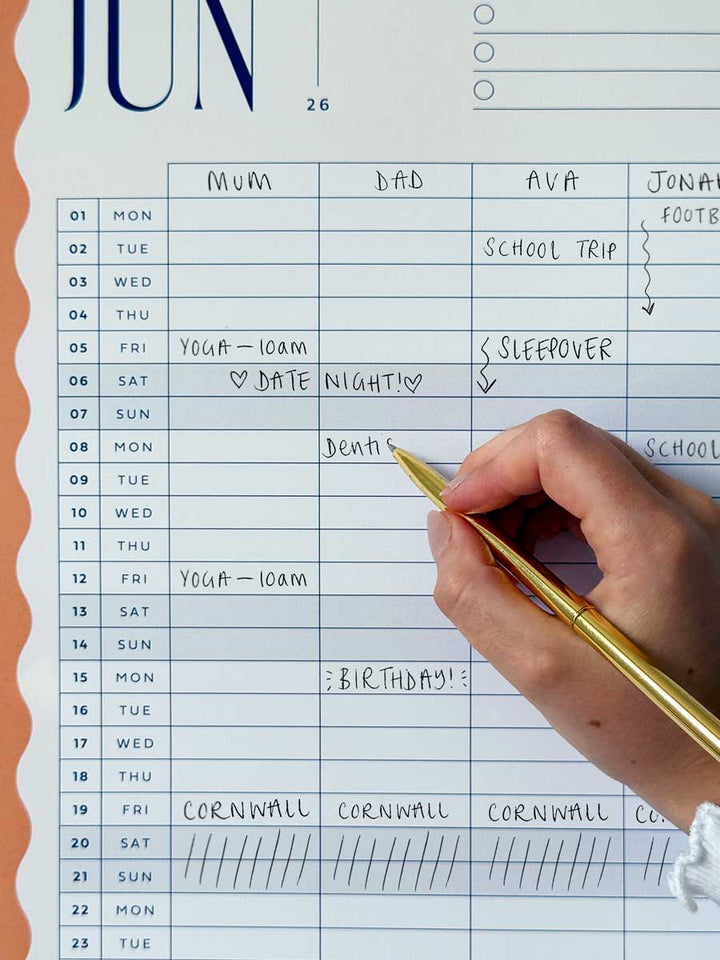 JUN
26
MUM DAD AVA JONAH
01 MON FOOTB
02 TUE SCHOOL TRIP
03 WED
04 THU
05 FRI YOGA — 10am SLEEPOVER
06 SAT ♡ DATE NIGHT! ♡
07 SUN
08 MON Dentis SCHOOL
09 TUE
10 WED
11 THU
12 FRI YOGA — 10am
13 SAT
14 SUN
15 MON BIRTHDAY!
16 TUE
17 WED
18 THU
19 FRI CORNWALL CORNWALL CORNWALL CO
20 SAT
21 SUN
22 MON
23 TUE